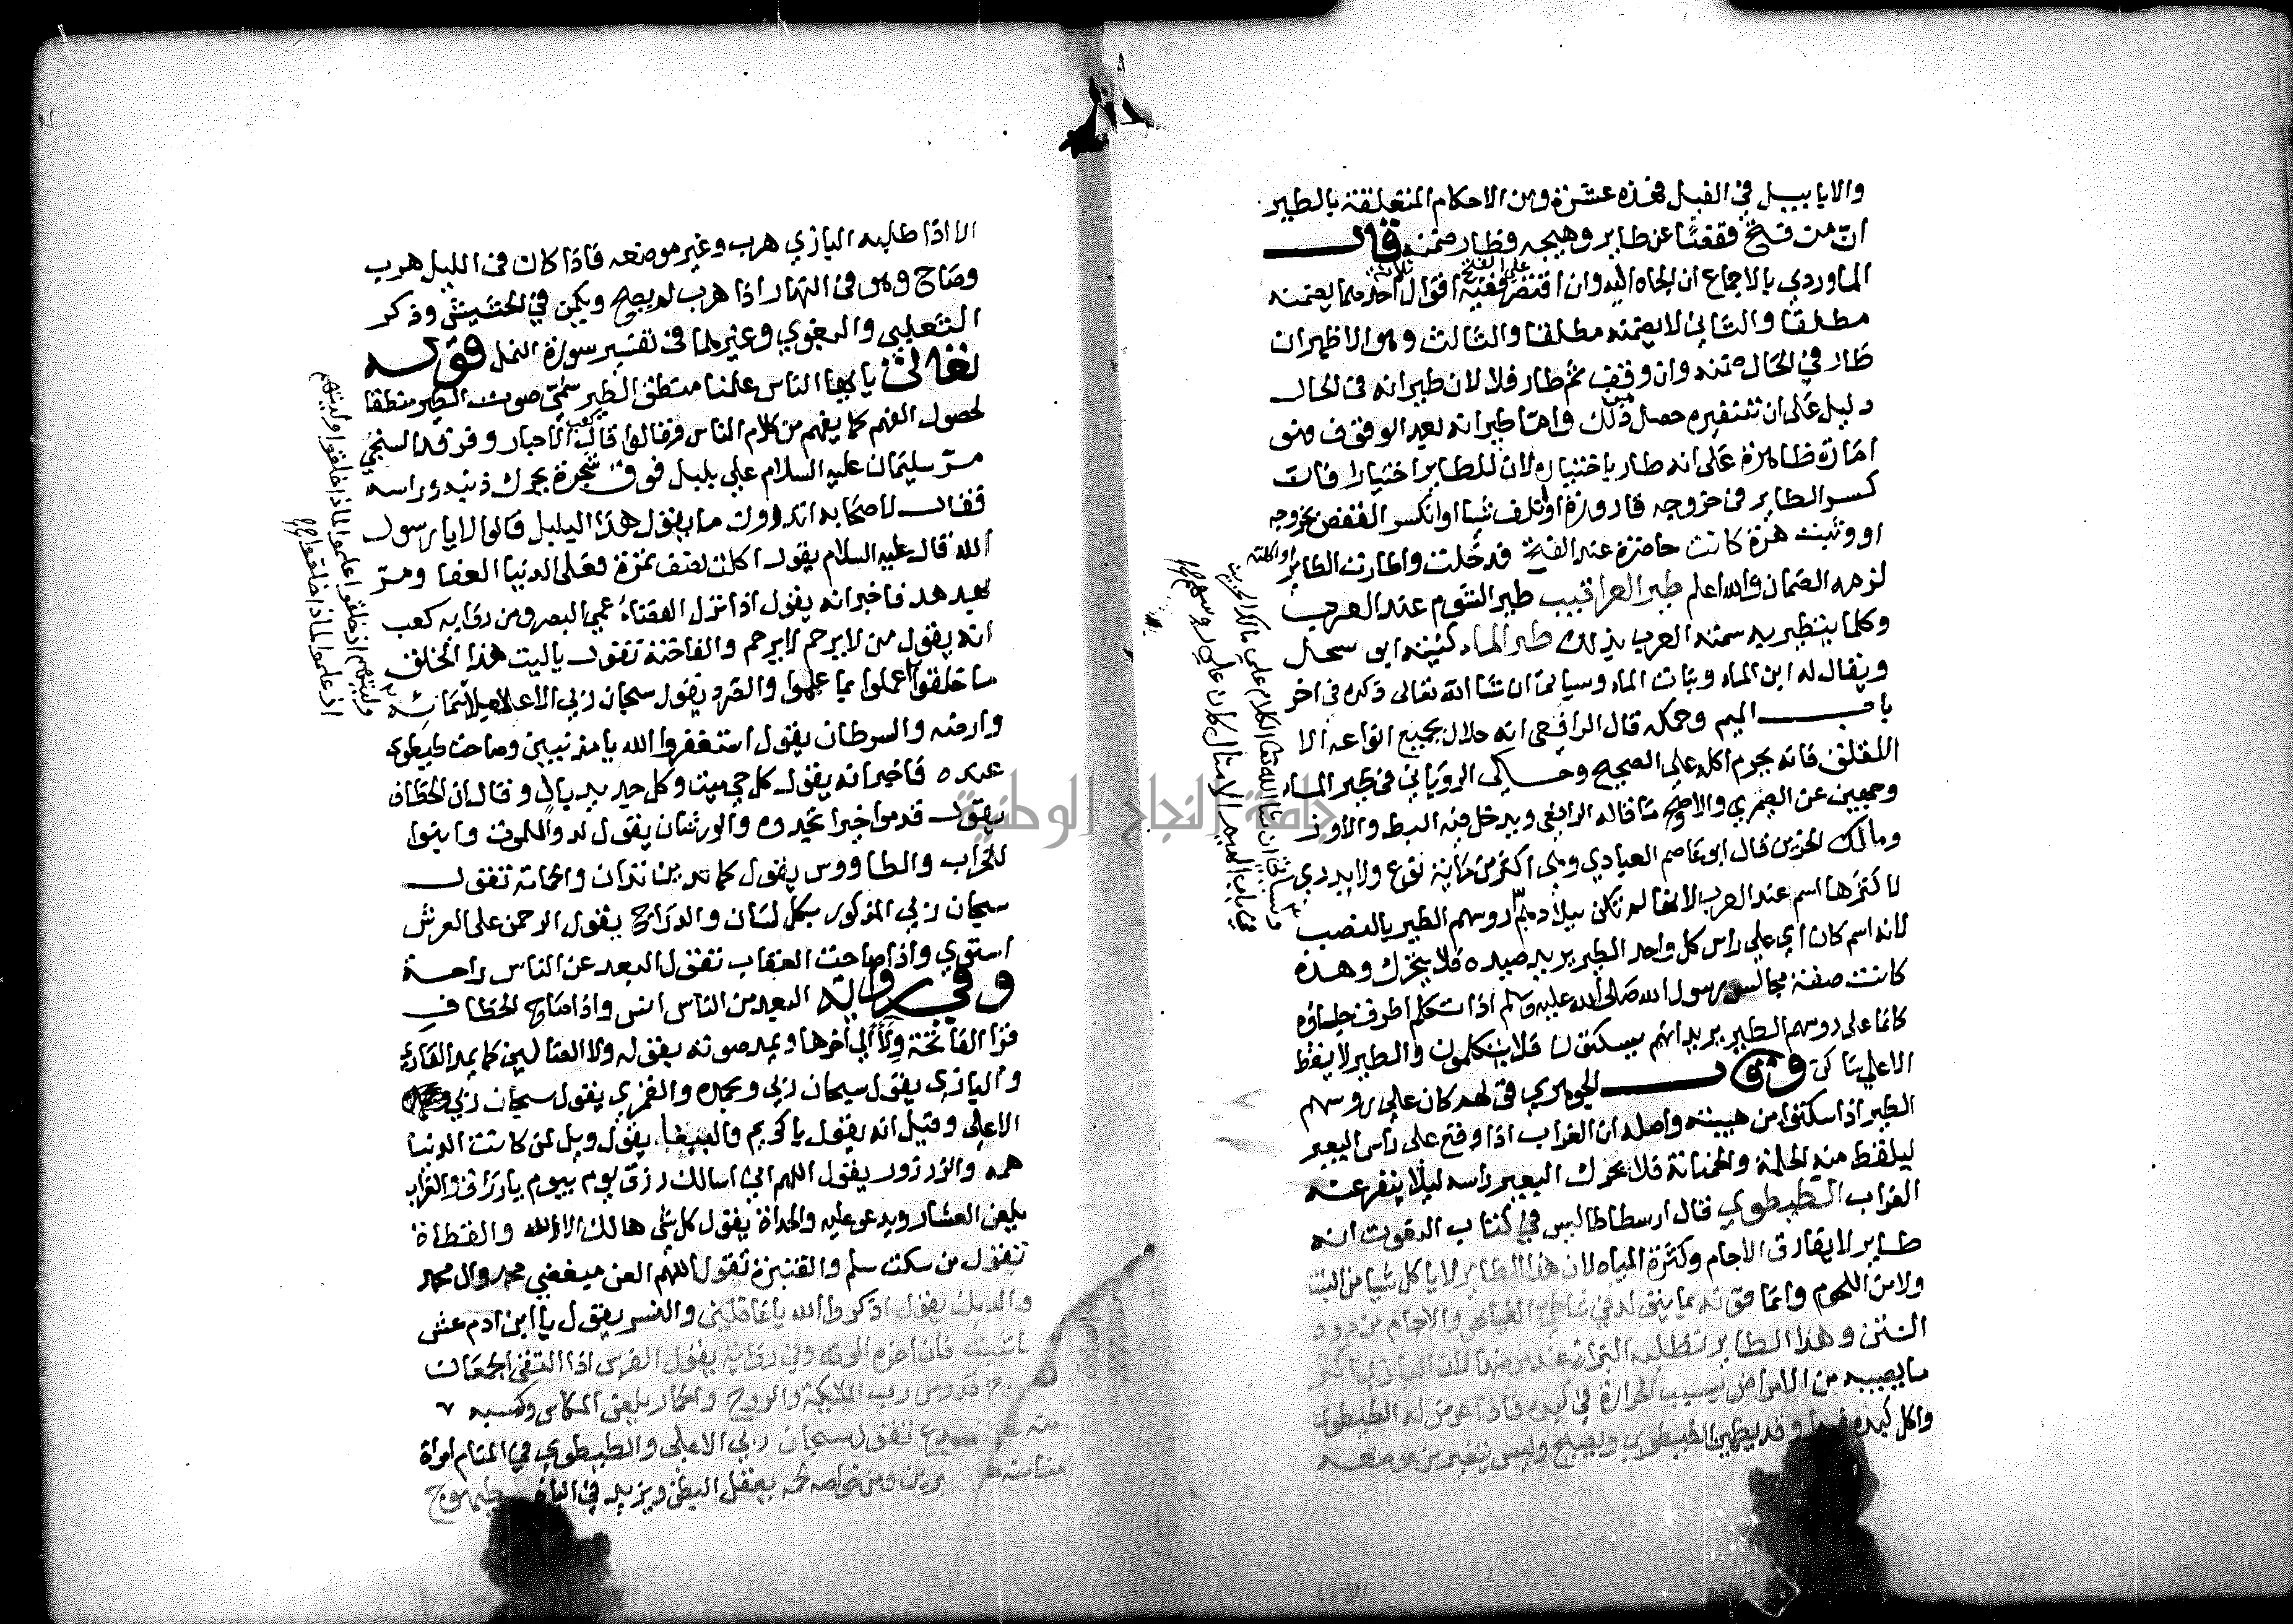 والابابيل في الفيل فهذه عشرة ومن الاحكام المتعلقة بالطير
ان من فتح قفصا عن طاير وهيجه فطار ضمنه قال
الماوردي بالاجماع لان الجاه اليه وان اقتصر على الفتح ففيه ثلاثة اقوال احدهما يضمنه
مطلقا والثاني لا يضمنه مطلقا والثالث وهو الاظهر ان
طار في الحال ضمنه وان وقف ثم طار فلا لان طيرانه في الحال
دليل على ان تنفيره حصل ذلك واما طيرانه بعد الوقوف فهو
امارة ظاهرة على انه طار باختياره لان للطاير اختيارا فان
كسر الطاير في خروجه قارورة او اتلف شيا او انكسر القفص بخروجه
او وثبت هرة كانت حاضرة عند الفتح فدخلت واطارت الطاير او اكلته
لزمه الضمان والله اعلم طير العراقيب طير الشوم عند العرب
وكلما يتطير به سمته العرب بذلك طير الماء كنيته ابو سحل
ويقال له ابن الماء وبنات الماء وسياتي ان شا الله تعالى ذكره في اخر
باب الميم وحكمه قال الرافعي انه حلال بجميع انواعه الا
اللقلق فانه يحرم اكله على الصحيح وحكى الروياني في طير الماء
وجهين عن الصيمري والاصح ما قاله الرافعي ويدخل فيه البط والاوز
ومالك الحزين قال ابو عاصم العبادي وهي اكثر من ماية نوع ولا يدرى
لاكثرها اسم عند العرب لانها لم تكن ببلادهم
روسهم الطير بالنصب
لانه اسم كان اي على راس كل واحد الطير يريد صيده فلا يتحرك وهذه
كانت صفة مجالس رسول الله صلى الله عليه وسلم اذا تكلم اطرق جلساؤه
كانما على روسهم الطير يريد انهم يسكتون فلا يتكلمون والطير لا يقط
الا على ساكن وقال الجوهري قولهم كان على روسهم
الطير اذا سكتوا من هيبته واصله ان الغراب اذا وقع على راس البعير
ليلقط منه الحلمة والحمنانة فلا يحرك البعير راسه ليلا ينفر عنه
الغراب الطيطوي قال ارسطاطاليس في كتاب النعوت انه
طاير لا يفارق الاجام وكثرة المياه لان هذا الطاير لا ياكل شيا من النبت
ولا من اللحوم وانما قوته مما يتولد في شاطي الغياض والاجام من دود
النتن وهذا الطاير تطلبه البزاة عند مرضها لان البازي اكثر
ما يصيبه من الامراض بسبب الحرارة في كبده فاذا عرض له الطيطوي
واكل كبده وقد يطمين الطيطوي ويصيح وليس يتغير من موضعه
الا اذا
في باب الميم الامثال كان على روسهم
وسياتي ان شا الله تعا الكلام على مالك الحزين
الا اذا طلبه البازي هرب وغير موضعه فاذا كان في الليل هرب
وصاح وهو في النهار اذا هرب لم يصح ويكمن في الحشيش وذكر
الثعلبي والبغوي وغيرهما في تفسير سورة النمل قوله
تعالى يا ايها الناس علمنا منطق الطير سمي صوت الطير منطقا
لحصول الفهم كما يفهم من كلام الناس فرقالوا قال كعب الاحبار وفرقد السنجي
مر سليمان عليه السلام على بلبل فوق شجرة يحرك ذنبه وراسه
فقال لاصحابه اتدرون ما يقول هذا البلبل قالوا لا يا رسول
الله قال عليه السلام يقول اكلت نصف تمرة فعلى الدنيا العفا ومر
بهدهد فاخبر انه يقول اذا نزل القضاء عمي البصر ومن رواية كعب
انه يقول من لا يرحم لا يرحم والفاختة تقول يا ليت هذا الخلق
ما خلقوا اعملوا بما علموا والصرد يقول سبحان ربي الاعلى ملا سمائه
وارضه والسرطان يقول استغفروا الله يا مذنبين وصاحت طيطوى
عنده فاخبر انه يقول كل حي ميت وكل جديد بال وقال ان الخطاف
يقول قدموا خيرا تجدوه والورشان يقول لدوا للموت وابنوا
للخراب والطاووس يقول كما تدين تدان والحمامة تقول
سبحان ربي المذكور بكل لسان والدراج يقول الرحمن على العرش
استوى واذا صاحت العقاب تقول البعد عن الناس راحة
وفي رواية البعد من الناس انس واذا صاح الخطاف
قرا الفاتحة الى اخرها ويمد صوته بقوله ولا الضالين كما يمد القارئ
والبازي يقول سبحان ربي وبحمده والقمري يقول سبحان ربي
الاعلى وقيل انه يقول يا كريم والببغاء يقول ويل لمن كانت الدنيا
همه والزرزور يقول اللهم اني اسالك رزق يوم بيوم يا رزاق والغراب
يلعن العشار ويدعو عليه والحداة يقول كل شي هالك الا الله والقطاة
تقول من سكت سلم والقنبرة تقول اللهم العن مبغضي محمد وال محمد
والديك يقول اذكروا الله يا غافلين والنسر يقول يا ابن ادم عش
ما شيت فان اخره الموت وفي رواية يقول الفرس اذا التقى الجمعان
قدوس رب الملايكة والروح والحمار يلعن المكاس وكسبه
تقول سبحان ربي الاعلى والطيطوي في المنام امراة
ومن خواصه لحمه يعقل البطن ويزيد في الباه طيهوج
وليتهم اذ خلقوا علموا لماذا خلقوا وليتهم
اذ علموا لماذا خلقوا